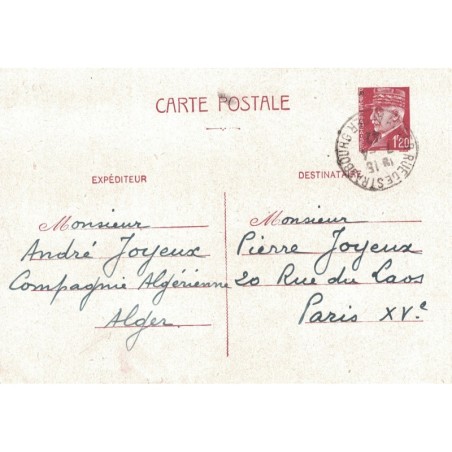 CARTE POSTALE
1F20
RUE DE STRASBOURG
18 15
EXPÉDITEUR
DESTINATAIRE
Monsieur
André Joyeux
Compagnie Algérienne
Alger
Monsieur
Pierre Joyeux
20 Rue du Laos
Paris XVe